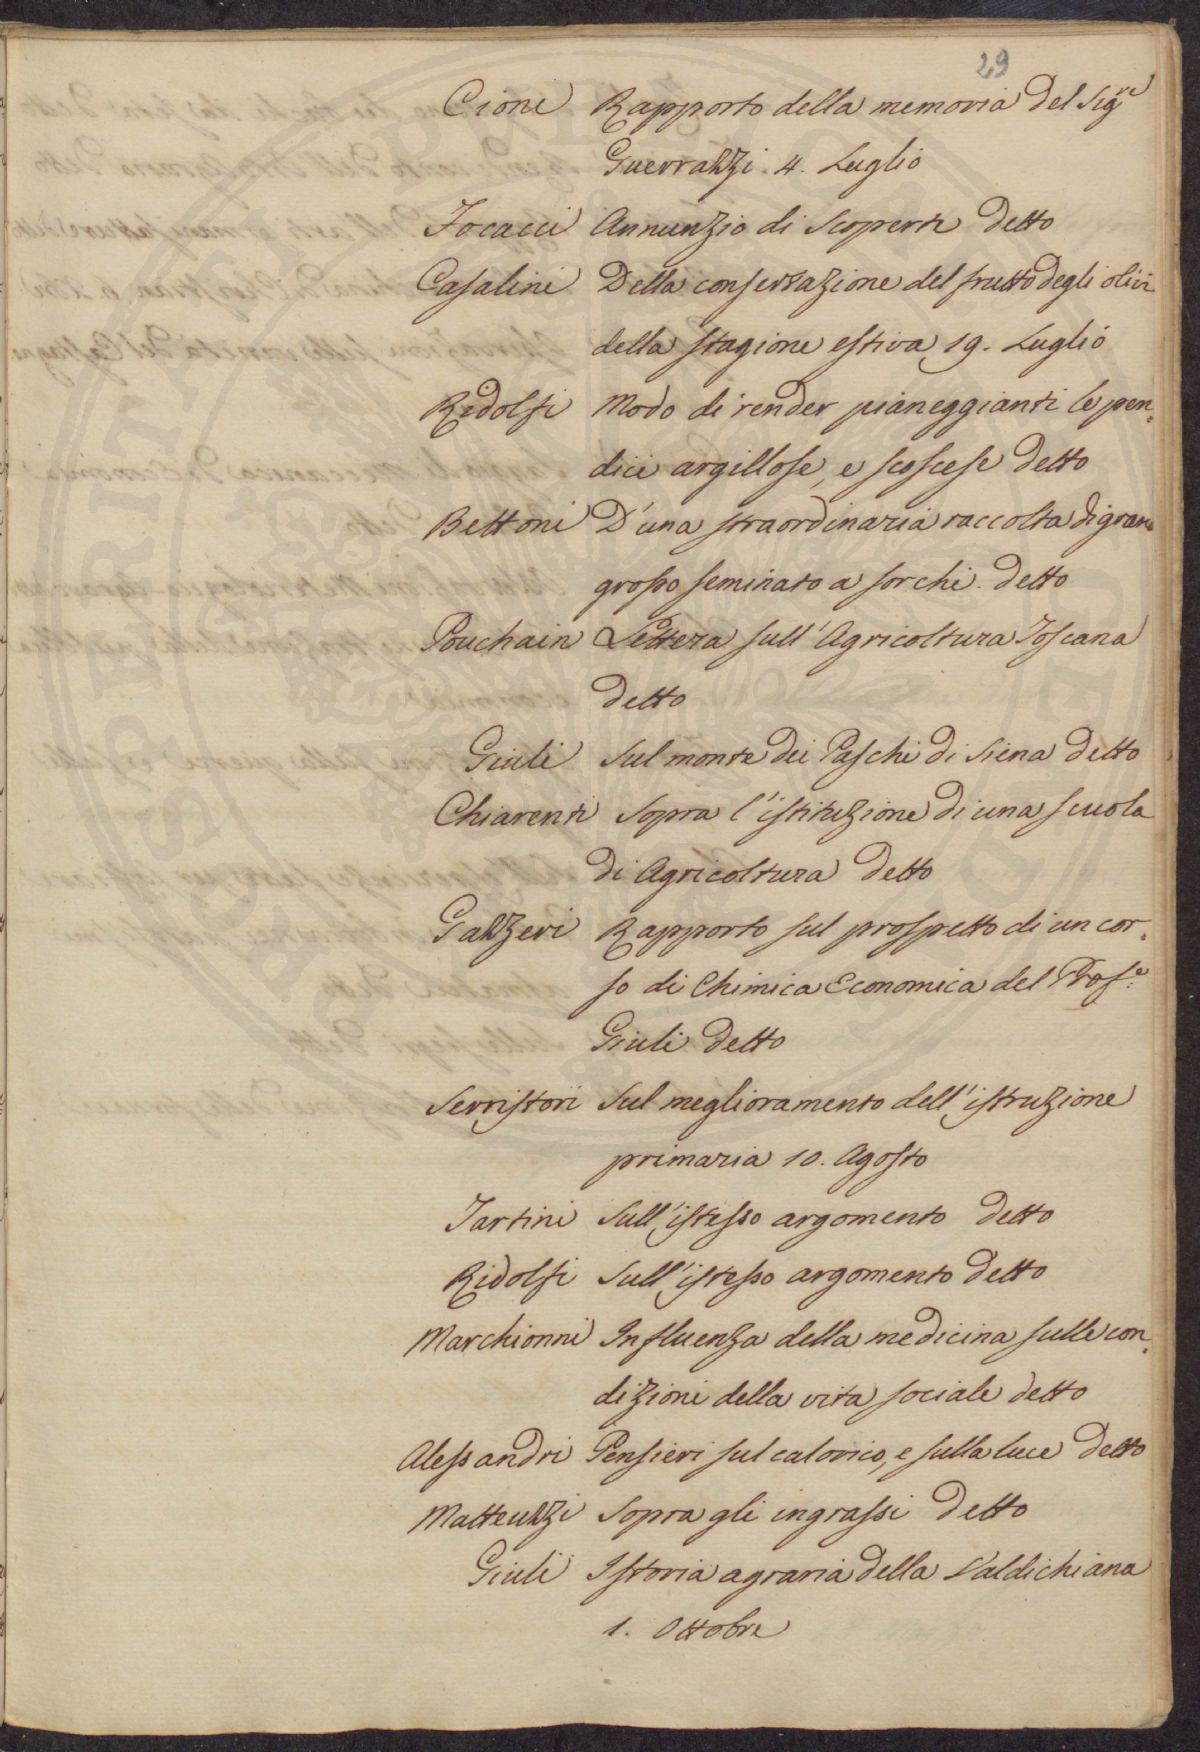 29
Cioni Rapporto della memoria del Sig.re
Guerrazzi. 4. Luglio
Focacci Annunzio di scoperte detto
Casalini Della conservazione del frutto degli olivi
della stagione estiva 19. Luglio
Ridolfi Modo di render pianeggianti le pen=
dici argillose, e scoscese detto
Bettoni D'una straordinaria raccolta di grano
grosso seminato a sorchi. detto
Pouchain Lettera sull'Agricoltura Toscana
detto
Giuli Sul monte dei Paschi di Siena detto
Chiarenti Sopra l'istituzione di una scuola
di Agricoltura detto
Gazzeri Rapporto sul prospetto di un cor=
so di Chimica Economica del Prof.e
Giuli detto
Serristori Sul meglioramento dell'istruzione
primaria 10. Agosto
Tartini Sull'istesso argomento detto
Ridolfi Sull'istesso argomento detto
Marchionni Influenza della medicina sulle con=
dizioni della vita sociale detto
Alessandri Pensieri sul calorico, e sulla luce detto
Matteuzzi Sopra gli ingrassi detto
Giuli Istoria agraria della Valdichiana
1. Ottobre